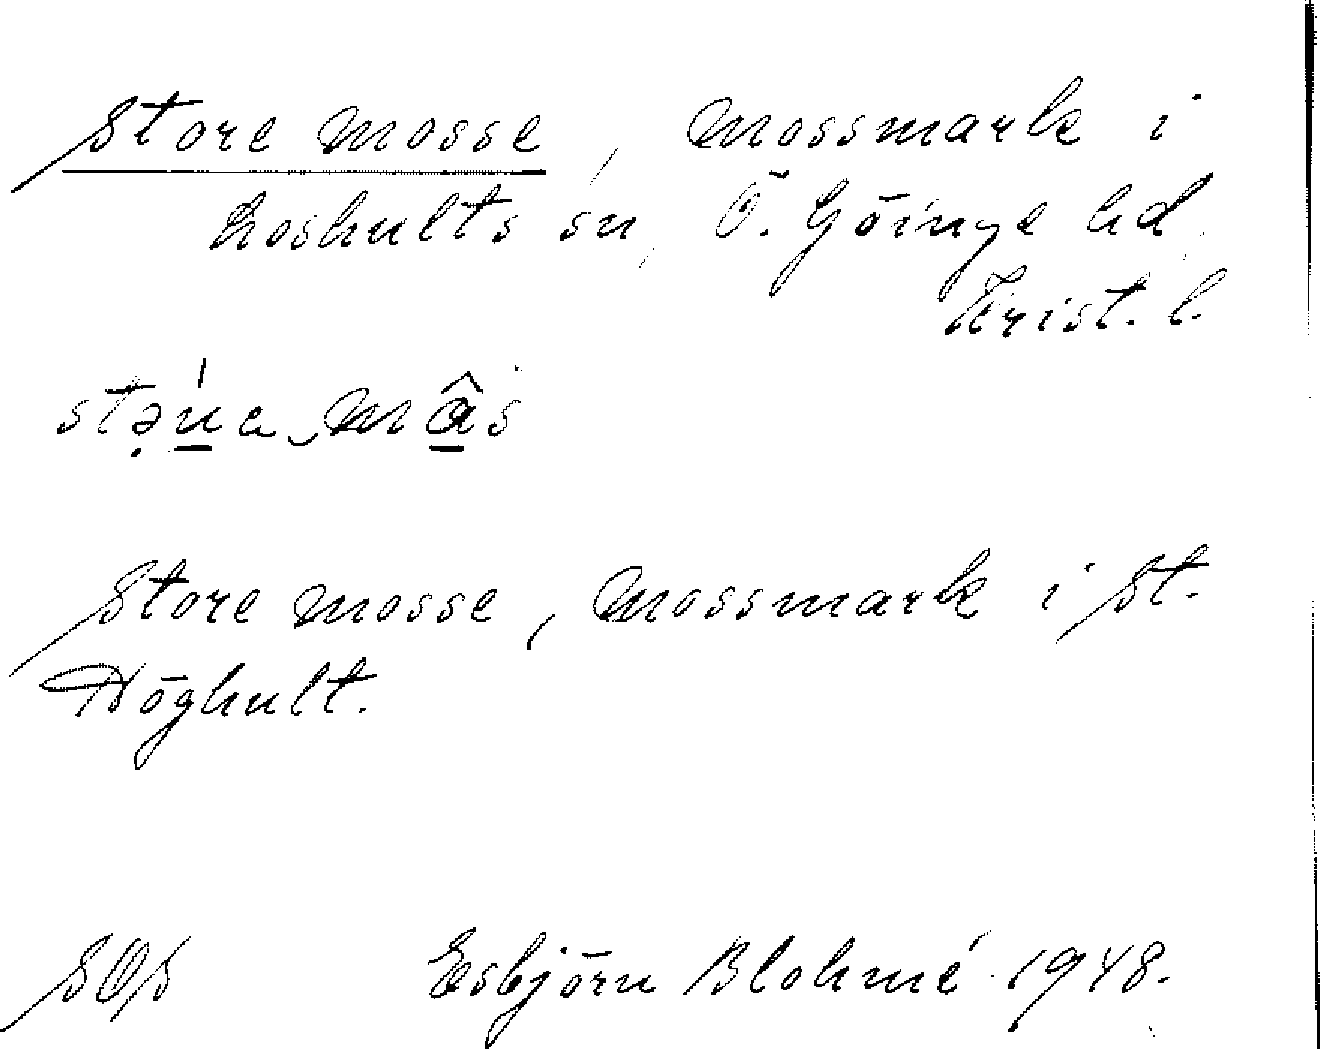 Store mosse, Mossmark i
Loshults sn, Ö. Göinge hd,
Krist. l.
Store mosse, Mossmark i St.
Höghult.
SOS Esbjörn Blohmé 1948.